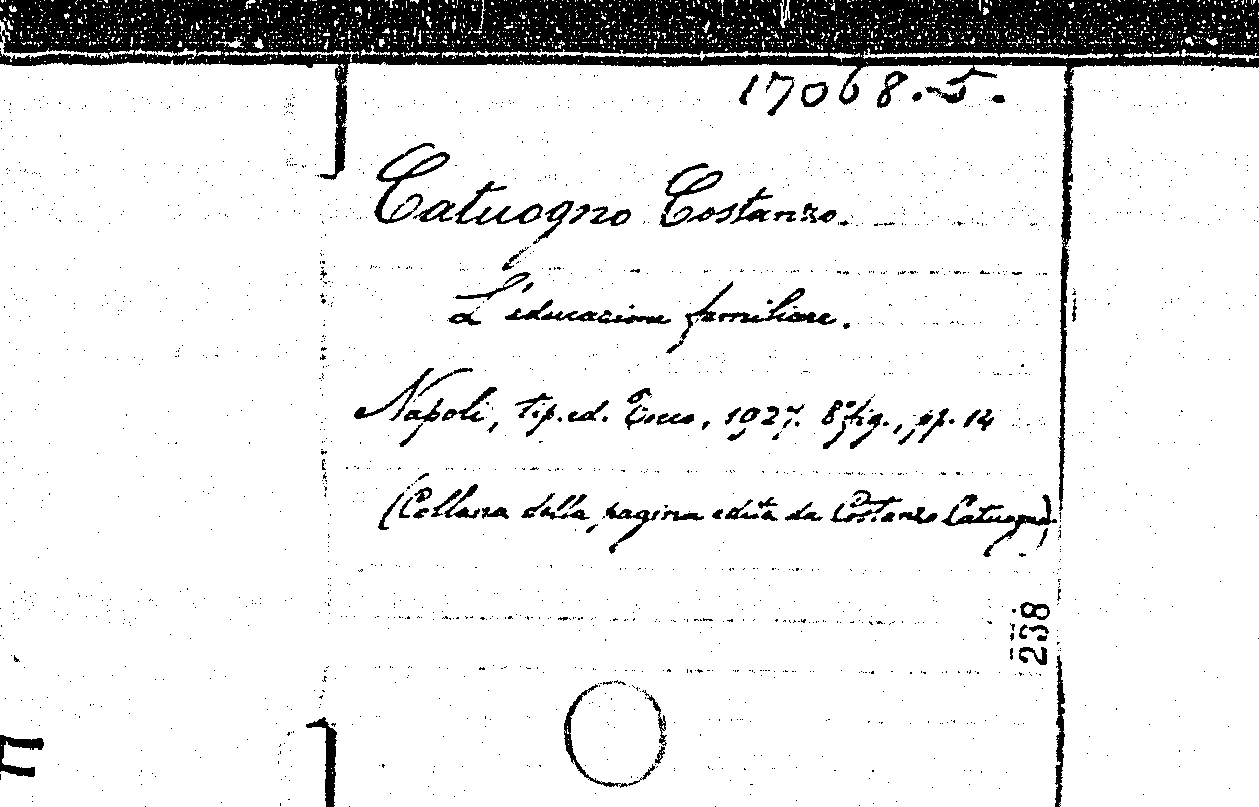 17068.5.
Catuogno Costanzo.
L'educazione familiare.
Napoli, tip. ed. Tocco, 1927. 8° fig., pp. 14
(Collana della pagina edita da Costanzo Catuogno)
238